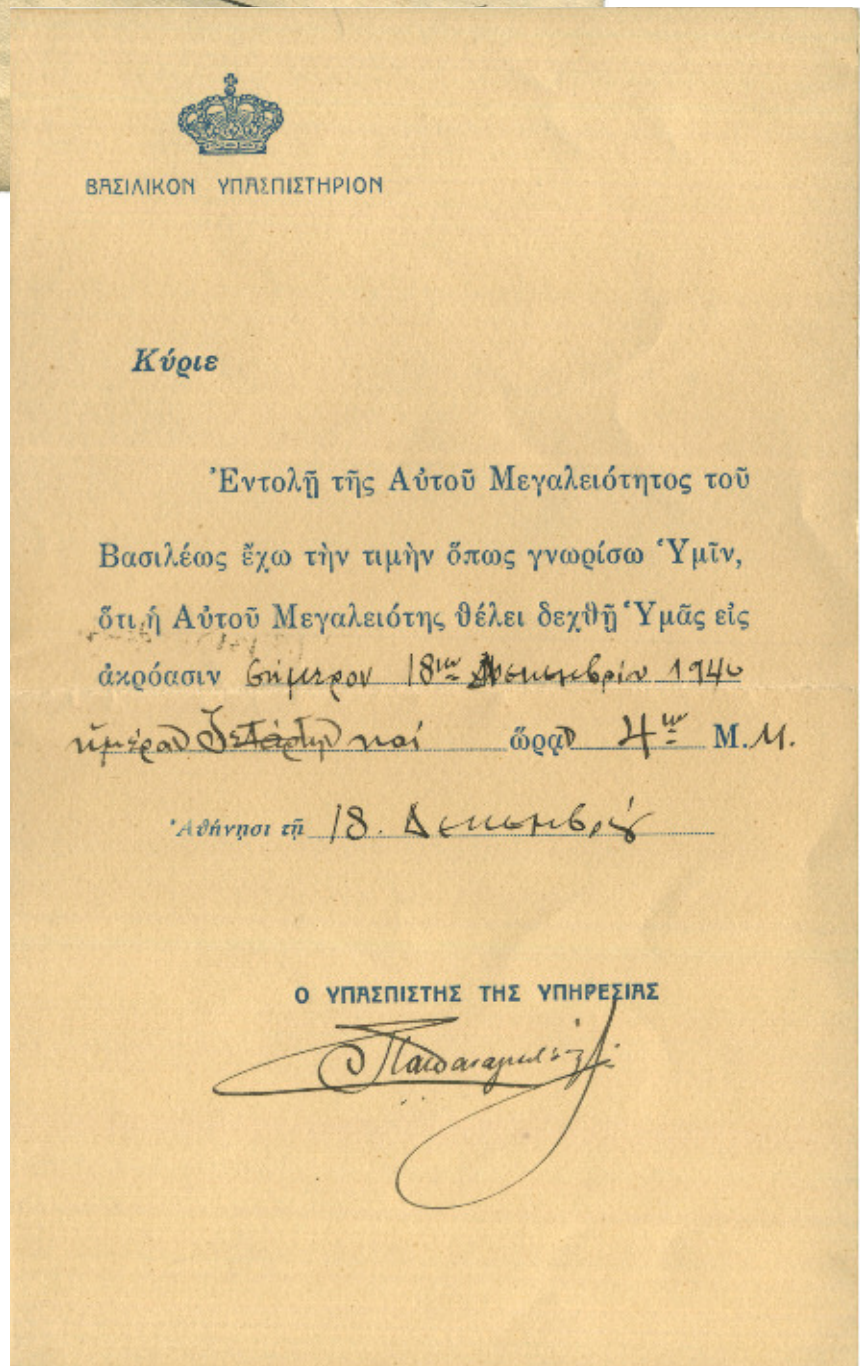 ΒΑΣΙΛΙΚΟΝ ΥΠΑΣΠΙΣΤΗΡΙΟΝ
Κύριε
Ἐντολῇ τῆς Αὐτοῦ Μεγαλειότητος τοῦ
Βασιλέως ἔχω τὴν τιμὴν ὅπως γνωρίσω Ὑμῖν,
ὅτι ἡ Αὐτοῦ Μεγαλειότης θέλει δεχθῇ Ὑμᾶς εἰς
ἀκρόασιν σήμερον 18ην Δεκεμβρίου 1940
ἡμέραν Τετάρτην καί ὥραν 4ην Μ.Μ.
Ἀθήνησι τῇ 18. Δεκεμβρίου
Ο ΥΠΑΣΠΙΣΤΗΣ ΤΗΣ ΥΠΗΡΕΣΙΑΣ